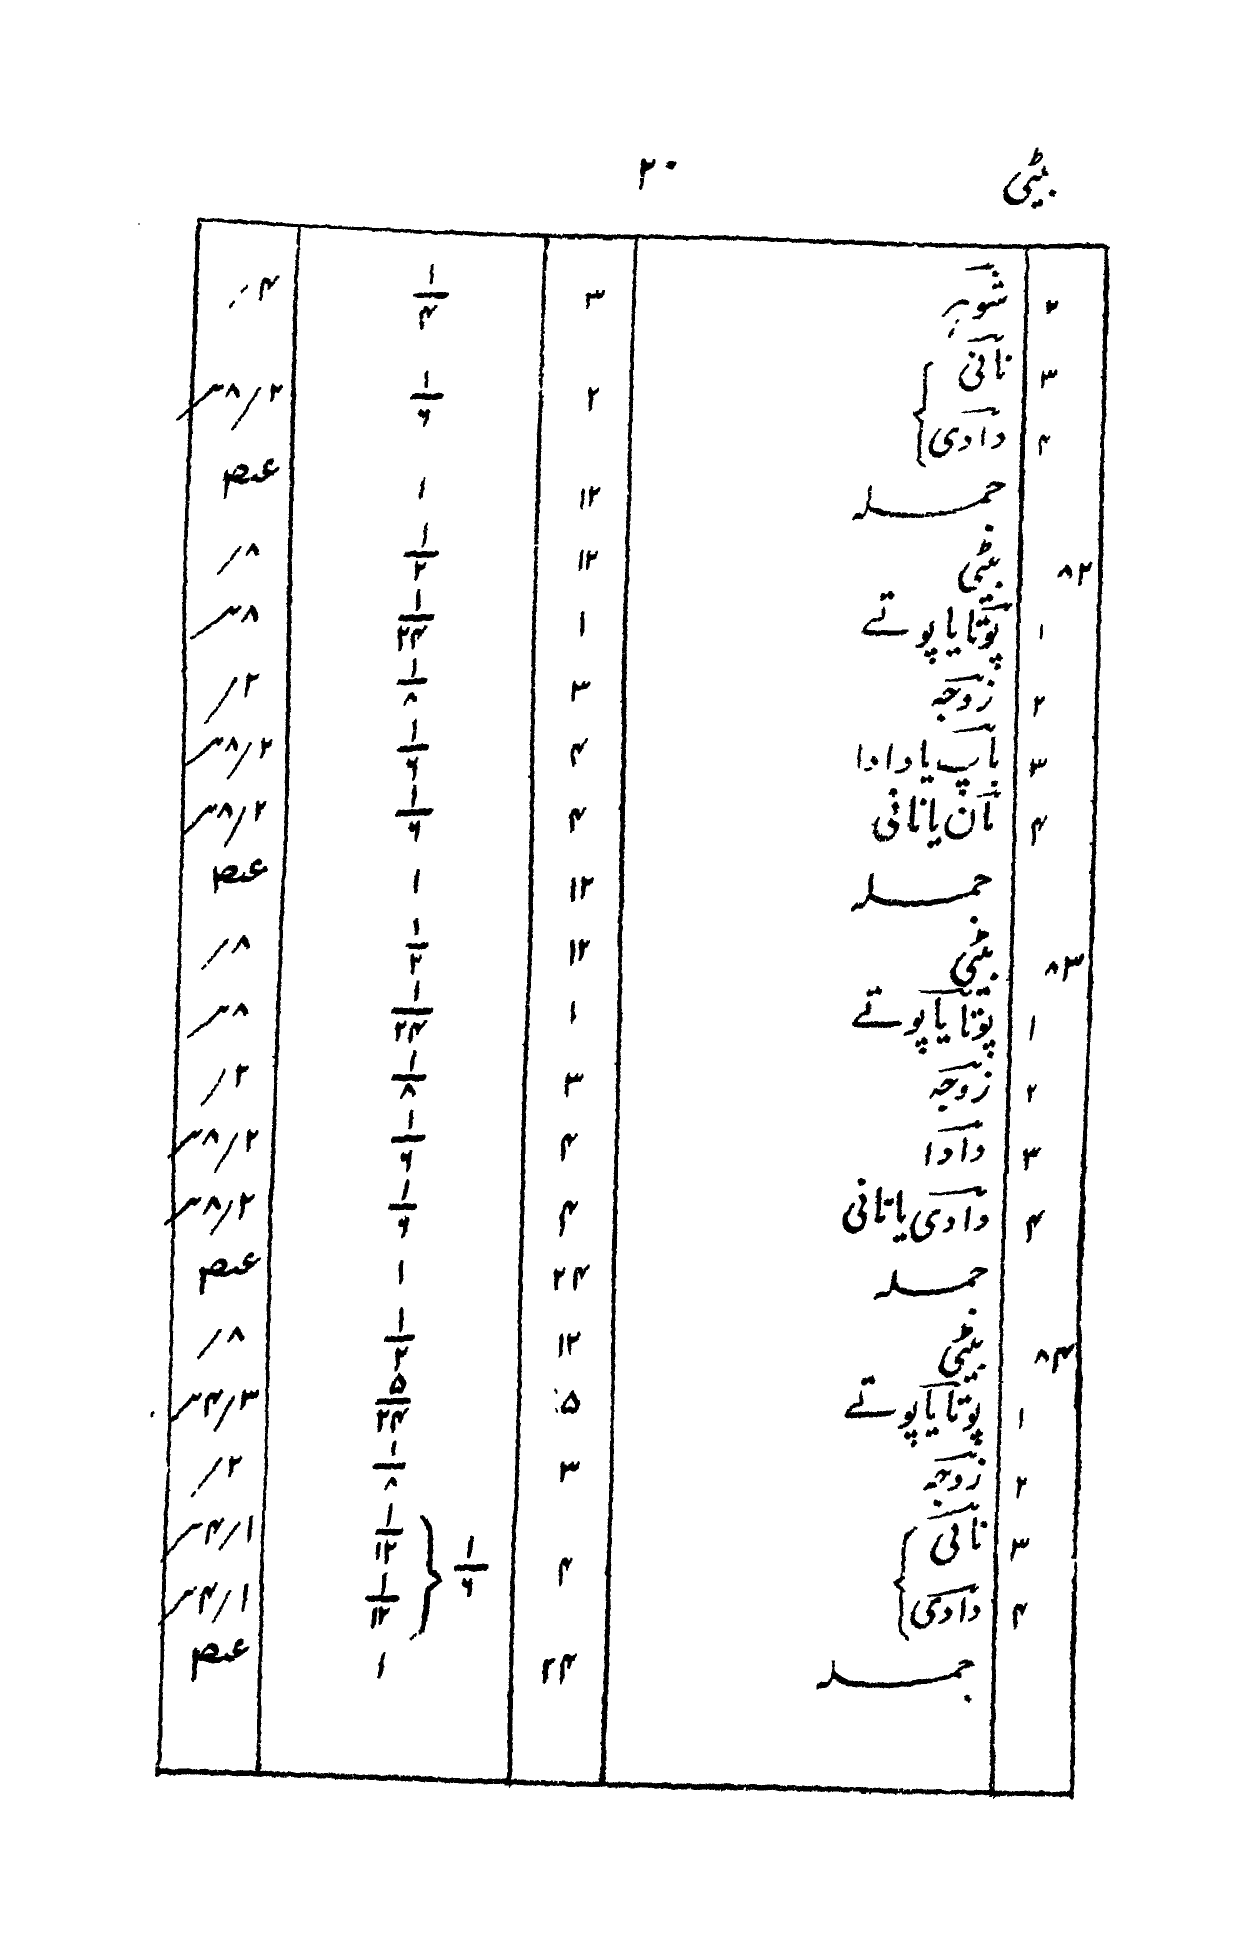 بیٹی ۲۰
۲ شوہر ۳ ۱/۴ ۴؍
۳ نانی ۲ ۱/۶ ۲؍۸
۴ دادی
جملہ ۱۲ ۱ عہ
۸۲ بیٹی ۱۲ ۱/۲ ۸؍
۱ پوتا یا پوتے ۱ ۱/۲۴ ۸
۲ زوجہ ۳ ۱/۸ ۲؍
۳ باپ یا دادا ۴ ۱/۶ ۲؍۸
۴ ماں یا نانی ۴ ۱/۶ ۲؍۸
جملہ ۱۲ ۱ عہ
۸۳ بیٹی ۱۲ ۱/۲ ۸؍
۱ پوتا یا پوتے ۱ ۱/۲۴ ۸
۲ زوجہ ۳ ۱/۸ ۲؍
۳ دادا ۴ ۱/۶ ۲؍۸
۴ دادی یا نانی ۴ ۱/۶ ۲؍۸
جملہ ۲۴ ۱ عہ
۸۴ بیٹی ۱۲ ۱/۲ ۸؍
۱ پوتا یا پوتے ۵ ۵/۲۴ ۳؍۴
۲ زوجہ ۳ ۱/۸ ۲؍
۳ نانی ۴ ۱/۶ ۱/۱۲ ۱؍۴
۴ دادی ۱/۱۲ ۱؍۴
جملہ ۲۴ ۱ عہ